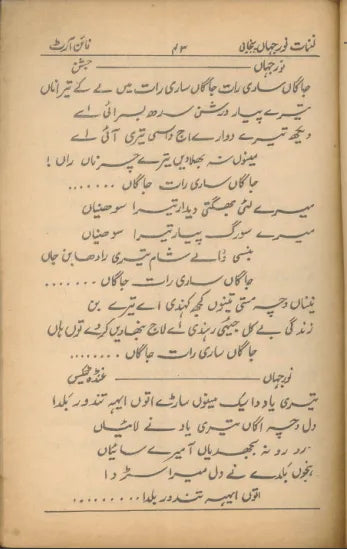 نغمات نورجہاں پنجابی ۴۳ فائن آرٹ
نورجہاں جشن
جاگاں ساری رات جاگاں ساری رات میں لے کے تیرا ناں
تیرے پیار درشن سدھ بسرائی اے
ویکھ تیرے دوارے اج داسی تیری آئی اے
مینوں نہ بھلا دیں تیرے چرناں راں!
جاگاں ساری رات جاگاں .......
میرے لئی بھگتی دیدار تیرا سوھنیاں
میرے سورگ پیار تیرا سوھنیاں
بنسی والے شام تیری رادھا بن جاں
جاگاں ساری رات جاگاں .......
نیناں وچہ مستی تینوں کجھ کہندی اے تیرے بن
زندگی بے کل جیئی رہندی اے لاج نبھا دیں کردے توں ہاں
جاگاں ساری رات جاگاں ........
نورجہاں غنڈہ ٹیکس
تیری یاد دا سیک مینوں ساڑے اتوں ایہہ تندور بلدا
دل وچہ اگاں تیری یاد نے لائیاں
رو رو نہ بجھدیاں آ میرے سائیاں
ہجوں بلدے نے دل میرا سڑدا
اتوں ایہہ تندور بلدا .........